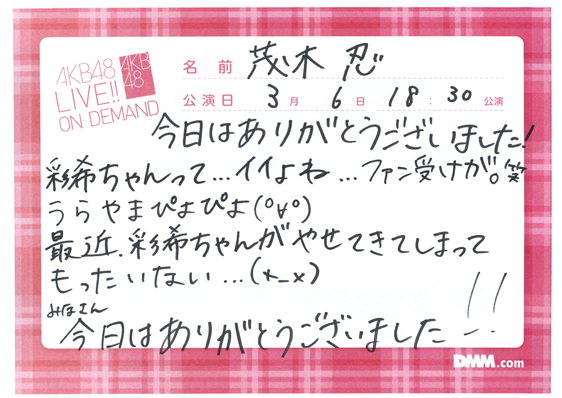 AKB48
LIVE!!
ON DEMAND
AKB
48
名前 茂木 忍
公演日 3月 6日 18:30公演
今日はありがとうございました!
彩希ちゃんって...イイよね...ファン受けが。笑
うらやまぴよぴよ(°∀°)
最近、彩希ちゃんがやせてきてしまって
もったいない...(x_x)
みなさん
今日はありがとうございました!!
DMM.com